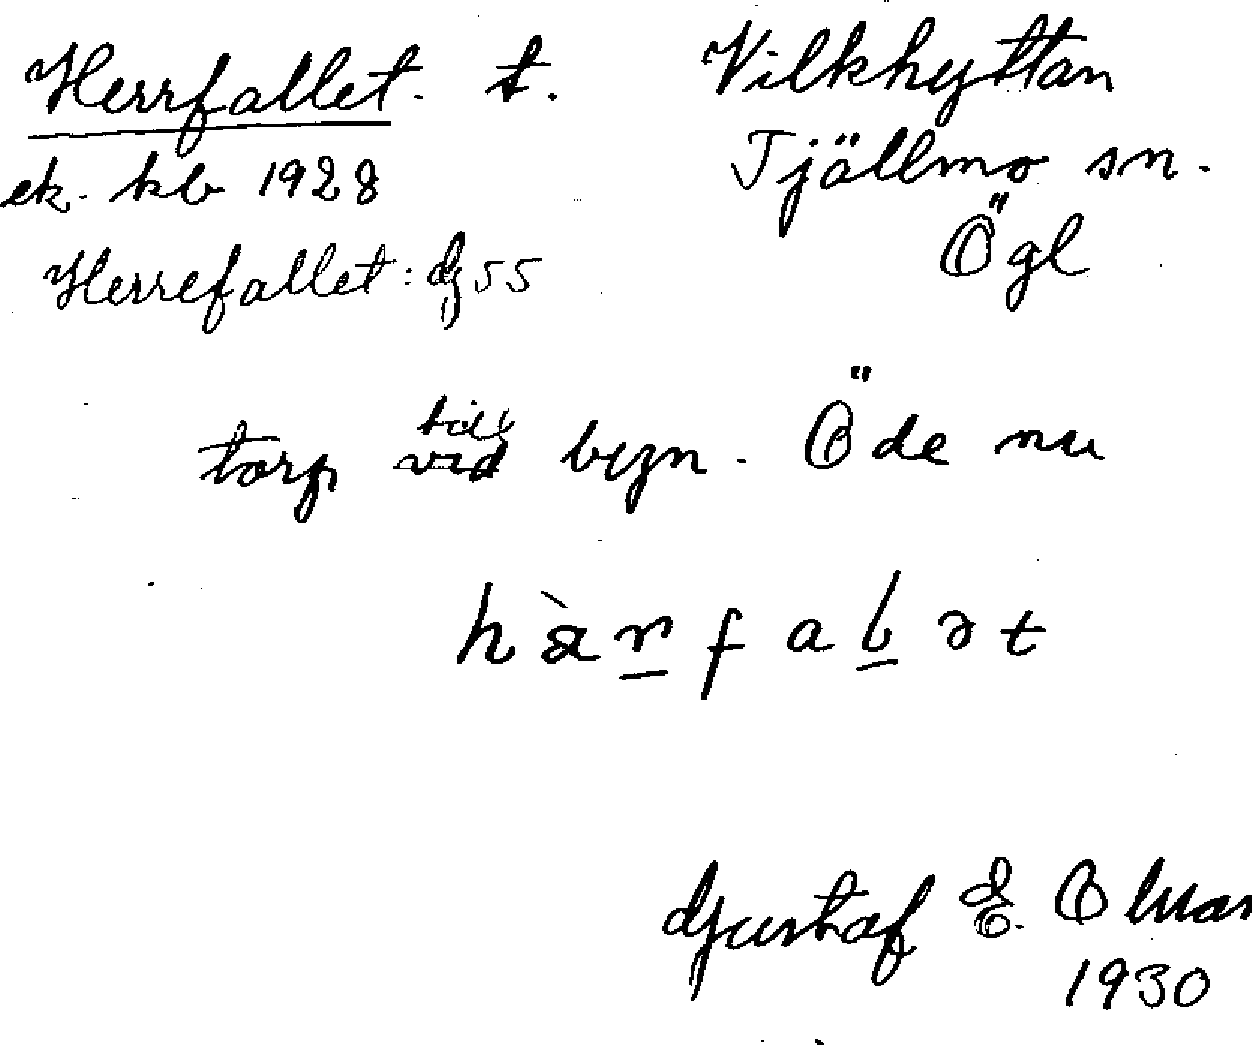 Herrfallet. t.
ek. kb 1928
Herrefallet: G 55
Vilkhyttan
Tjällmo sn.
Ögl
torp till vid byn. Öde nu
hàrfalət
Gustaf E. Olsson
1930